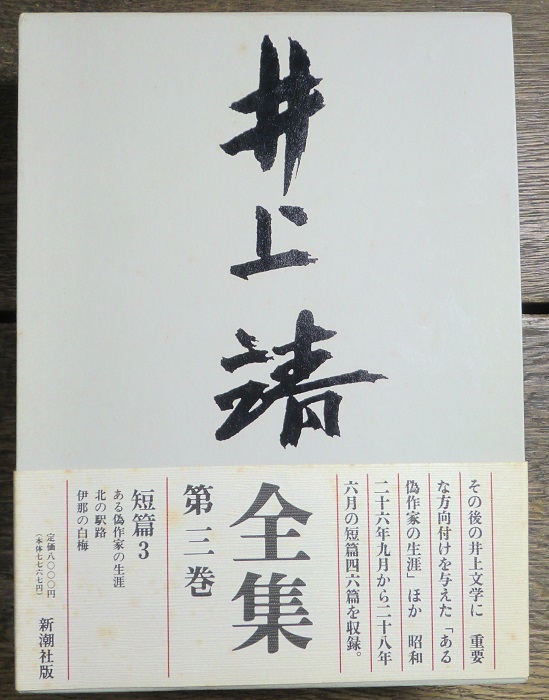 井上靖
全集
第三巻
その後の井上文学に 重要
な方向付けを与えた「ある
偽作家の生涯」ほか 昭和
二十六年九月から二十八年
六月の短篇四六篇を収録。
短篇3
ある偽作家の生涯
北の駅路
伊那の白梅
定価八〇〇〇円
(本体七七六七円)
新潮社版